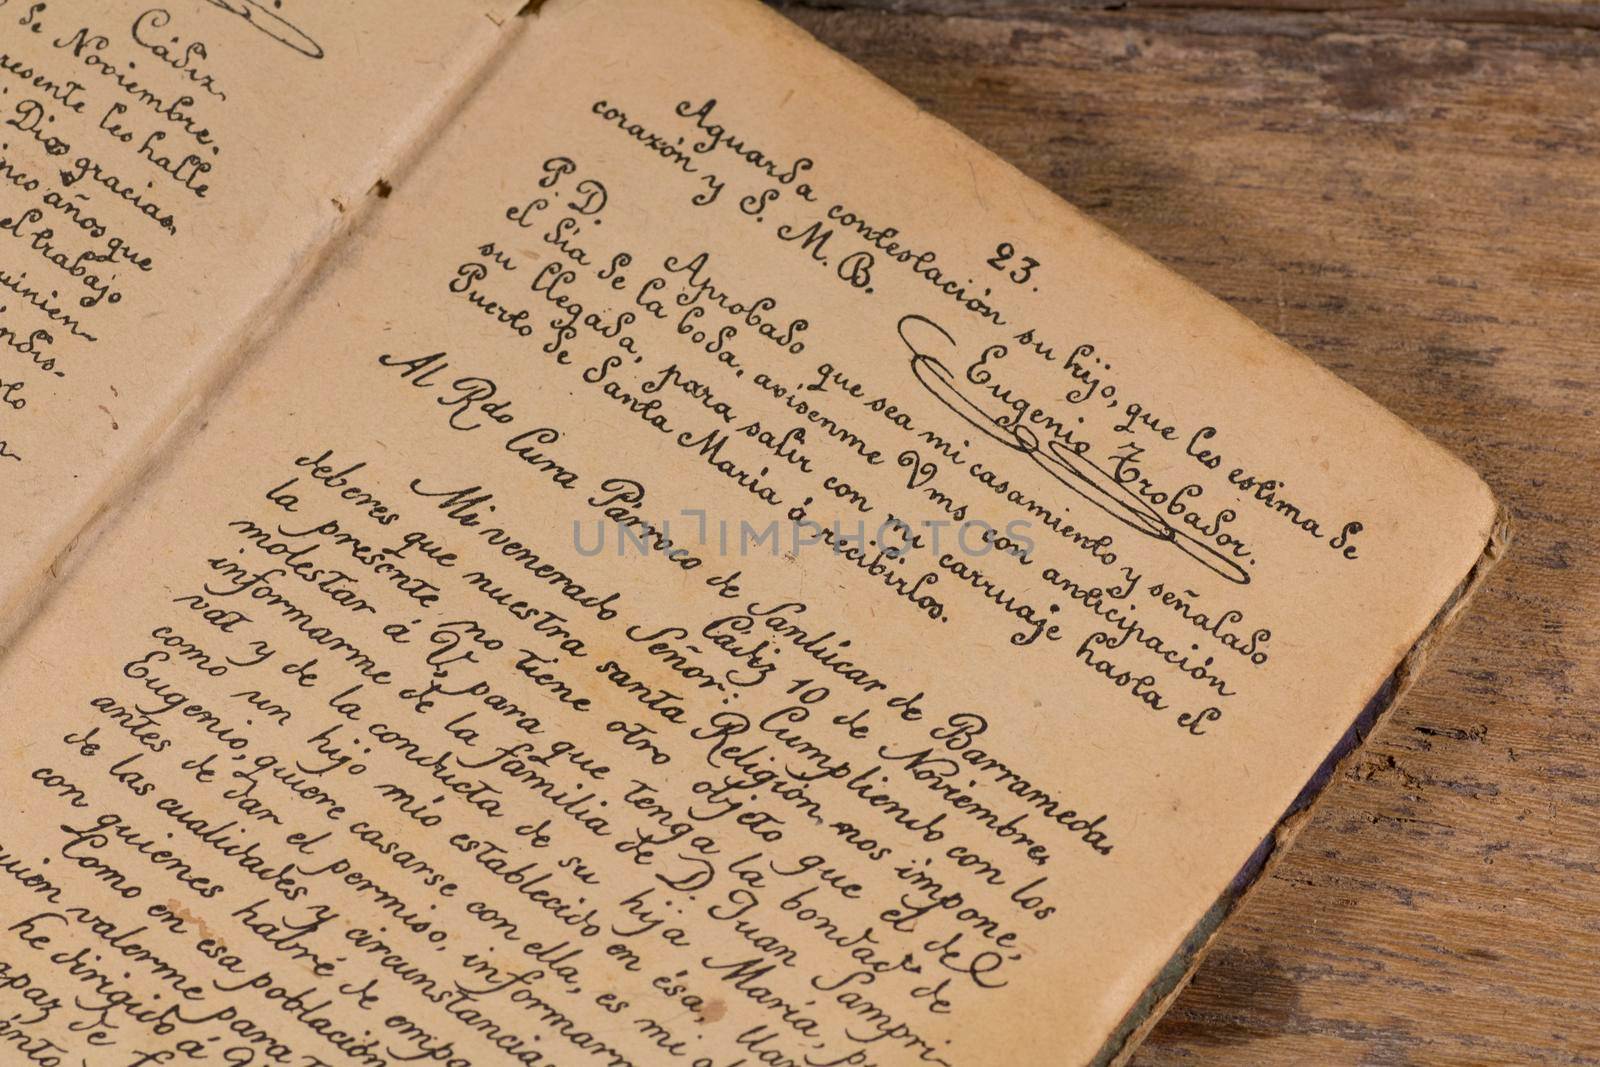 Cádiz
de Noviembre.
resente les halle
Dios gracias,
inco años que
el trabajo
uinien-
indis-
23.
Aguarda contestación su hijo, que les estima de
corazón y S. M. B.
Eugenio Trobador.
P. D. Aprobado que sea mi casamiento y señalado
el día de la boda, avísenme Vms con anticipación
su llegada, para salir con mi carruaje hasta el
Puerto de Santa María á recibirlos.
Al Rdo Cura Párroco de Sanlúcar de Barrameda.
Cádiz 10 de Noviembre,
Mi venerado Señor: Cumpliendo con los
deberes que nuestra santa Religión nos impone,
la presente no tiene otro objeto que el de
molestar á V. para que tenga la bondad de
informarme de la familia de D. Juan Sampri-
vat y de la conducta de su hija María, p
como un hijo mío establecido en ésa, llam
Eugenio, quiere casarse con ella, es mi
antes de dar el permiso, informarm
de las cualidades y circunstancia
con quienes habré de empa
Como en esa población
quien valerme para
he dirigido á V
apaz de f
ánto
UNLIMPHOTOS